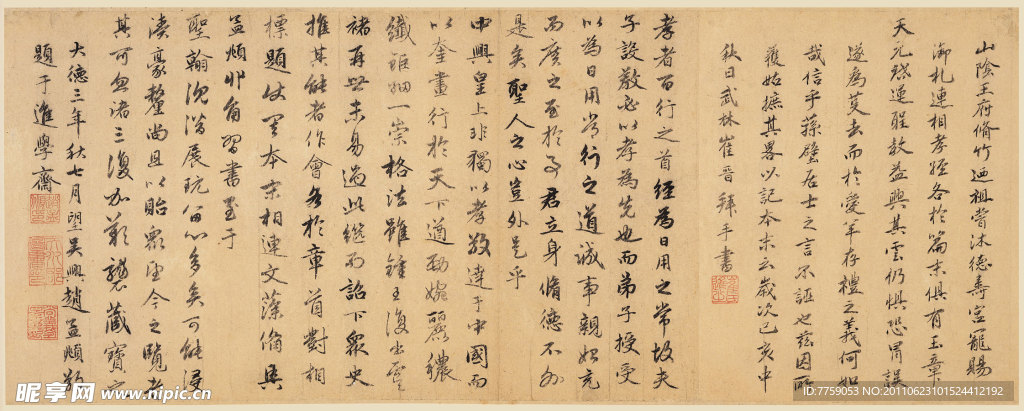 山陰王府脩竹廼祖嘗沐德壽宮寵賜
御札連相孝經各於篇末俱有玉章
天元璨運程教益興其雲仍懼恐冐誤
遂為莫去而於愛羊存禮之義何如
哉信乎蘇璧居士之言不誣也茲因
獲姑摭其畧以記本末云歲次己亥中
秋日武林崔晉拜手書
孝者百行之首經為日用之常故夫
子設教必以孝為先也而弟子授受
以為日用常行之道誠事親始充
而廣之至於事君立身脩德不外
是矣聖人之心豈外是乎
中興皇上非獨以孝敬達于中國而
以奎畫行於天下遒勁婉麗穠
纖短細一崇格法雖鍾王復出
褚再世未易過此繼而詔下眾史
推其能者作會各於章首對相
標題仗筆本末相連文藻脩具
孟頫丱角習書至于
聖翰沉潛展玩留心多矣可能得
湊豪釐尚且以貽眾聖今之覽者
其可忽諸三復加嘆襲藏寶之
大德三年秋七月望吳興趙孟頫
題于進學齋
昵享网 www.nipic.cn
ID:7759053 NO:20110623101524412192